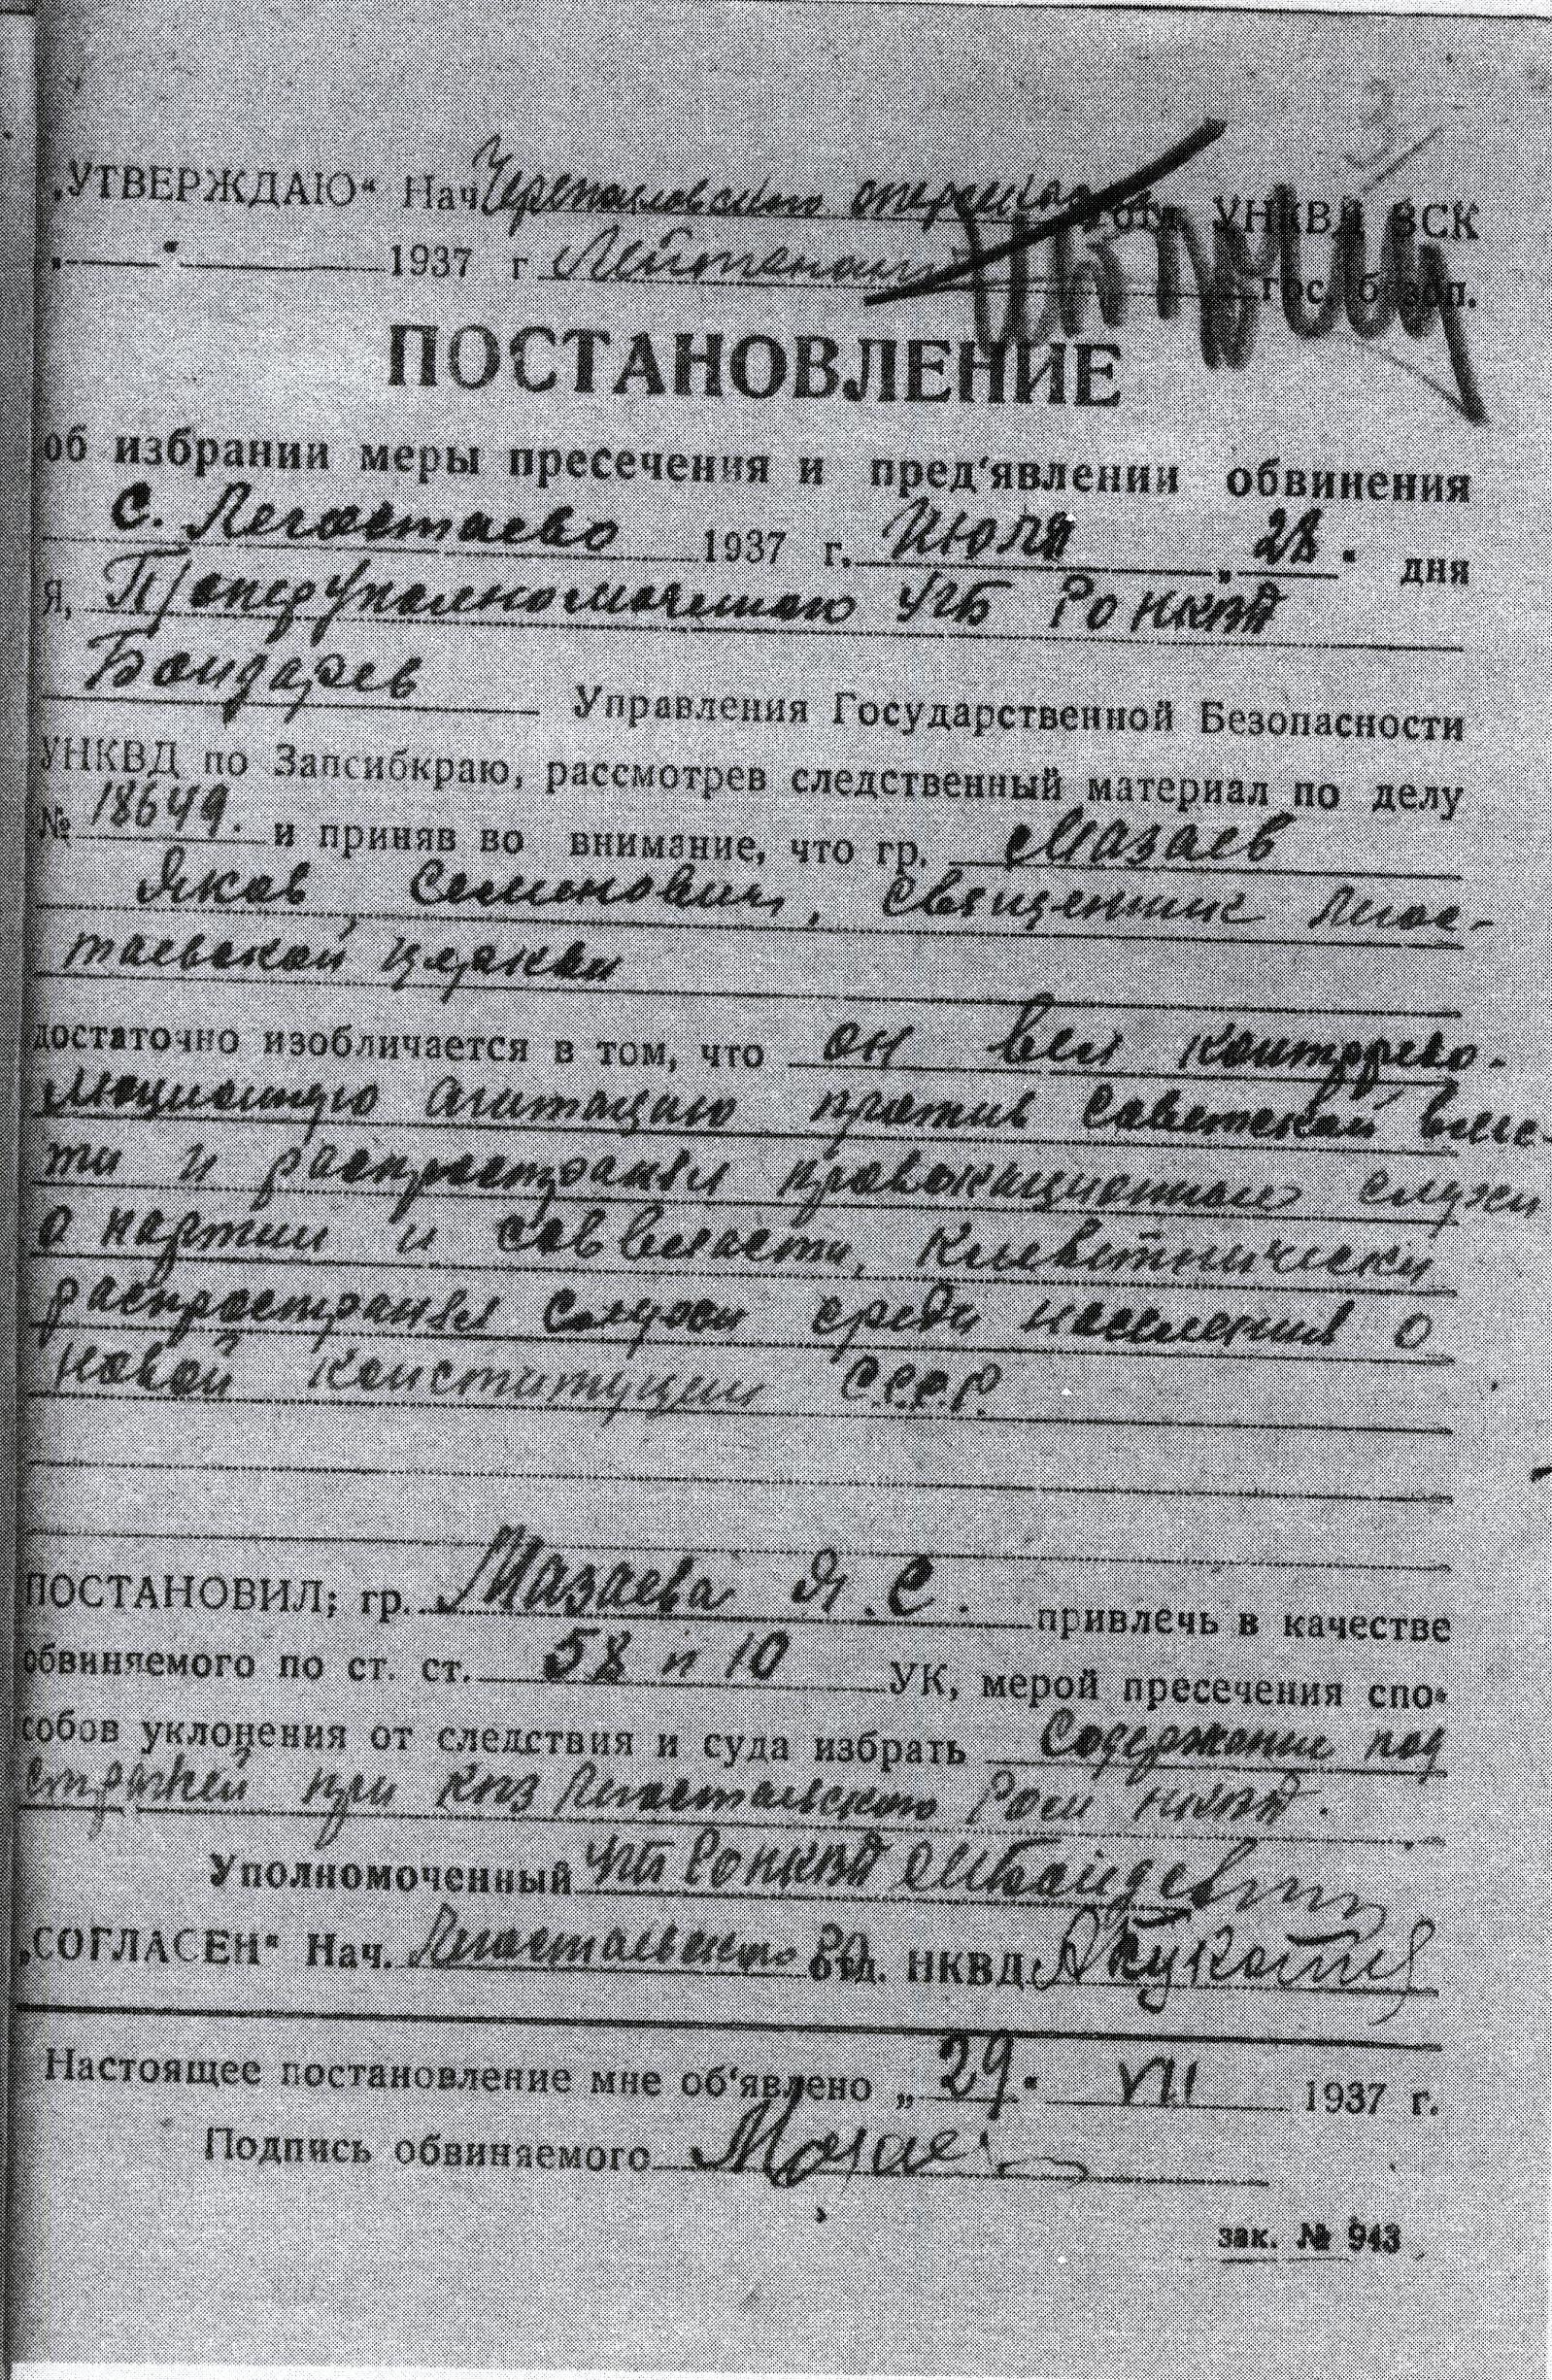 „УТВЕРЖДАЮ“ Нач Черепановского оперсектора УНКВД ЗСК
„ “ 1937 г Лейтенант гос. безоп.
ПОСТАНОВЛЕНИЕ
об избрании меры пресечения и пред'явлении обвинения
с. Легостаево 1937 г. Июля „28“ дня
Я, П/оперуполномоченного УГБ РО НКВД
Бондарев Управления Государственной Безопасности
УНКВД по Запсибкраю, рассмотрев следственный материал по делу
№ 18649. и приняв во внимание, что гр. Мазаев
Яков, Семенович, священник Легос-
таевской церкви
достаточно изобличается в том, что он вел контррево-
люционную агитацию против советской влас-
ти и распространял провокационные слухи
о партии и соввласти, клеветнически
распространял слухи среди населения о
новой конституции С.С.С.Р.
ПОСТАНОВИЛ; гр. Мазаева Я.С. привлечь в качестве
обвиняемого по ст. ст. 58 п 10 УК, мерой пресечения спо-
собов уклонения от следствия и суда избрать Содержание под
стражей при КПЗ Легостаевского РОМ НКВД.
Уполномоченный УГБ РО НКВД
„СОГЛАСЕН“ Нач. Легостаевского РО отд. НКВД
Настоящее постановление мне об'явлено „29“ VII 1937 г.
Подпись обвиняемого Мазаев
зак. № 943